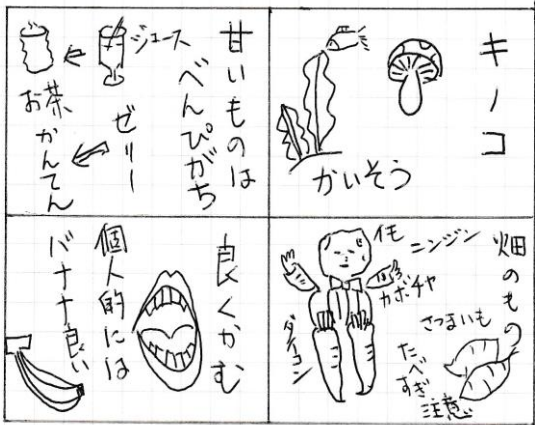 キノコ
かいそう
甘いものは
べんぴがち
ジュース
お茶
ゼリー
かんてん
畑のもの
イモ
ニンジン
カボチャ
ダイコン
さつまいも
たべすぎ
注意
良くかむ
個人的には
バナナ良い